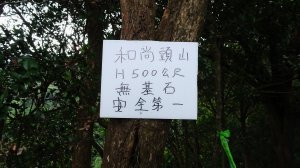 和尚頭山
H500公尺
無基石
安全第一